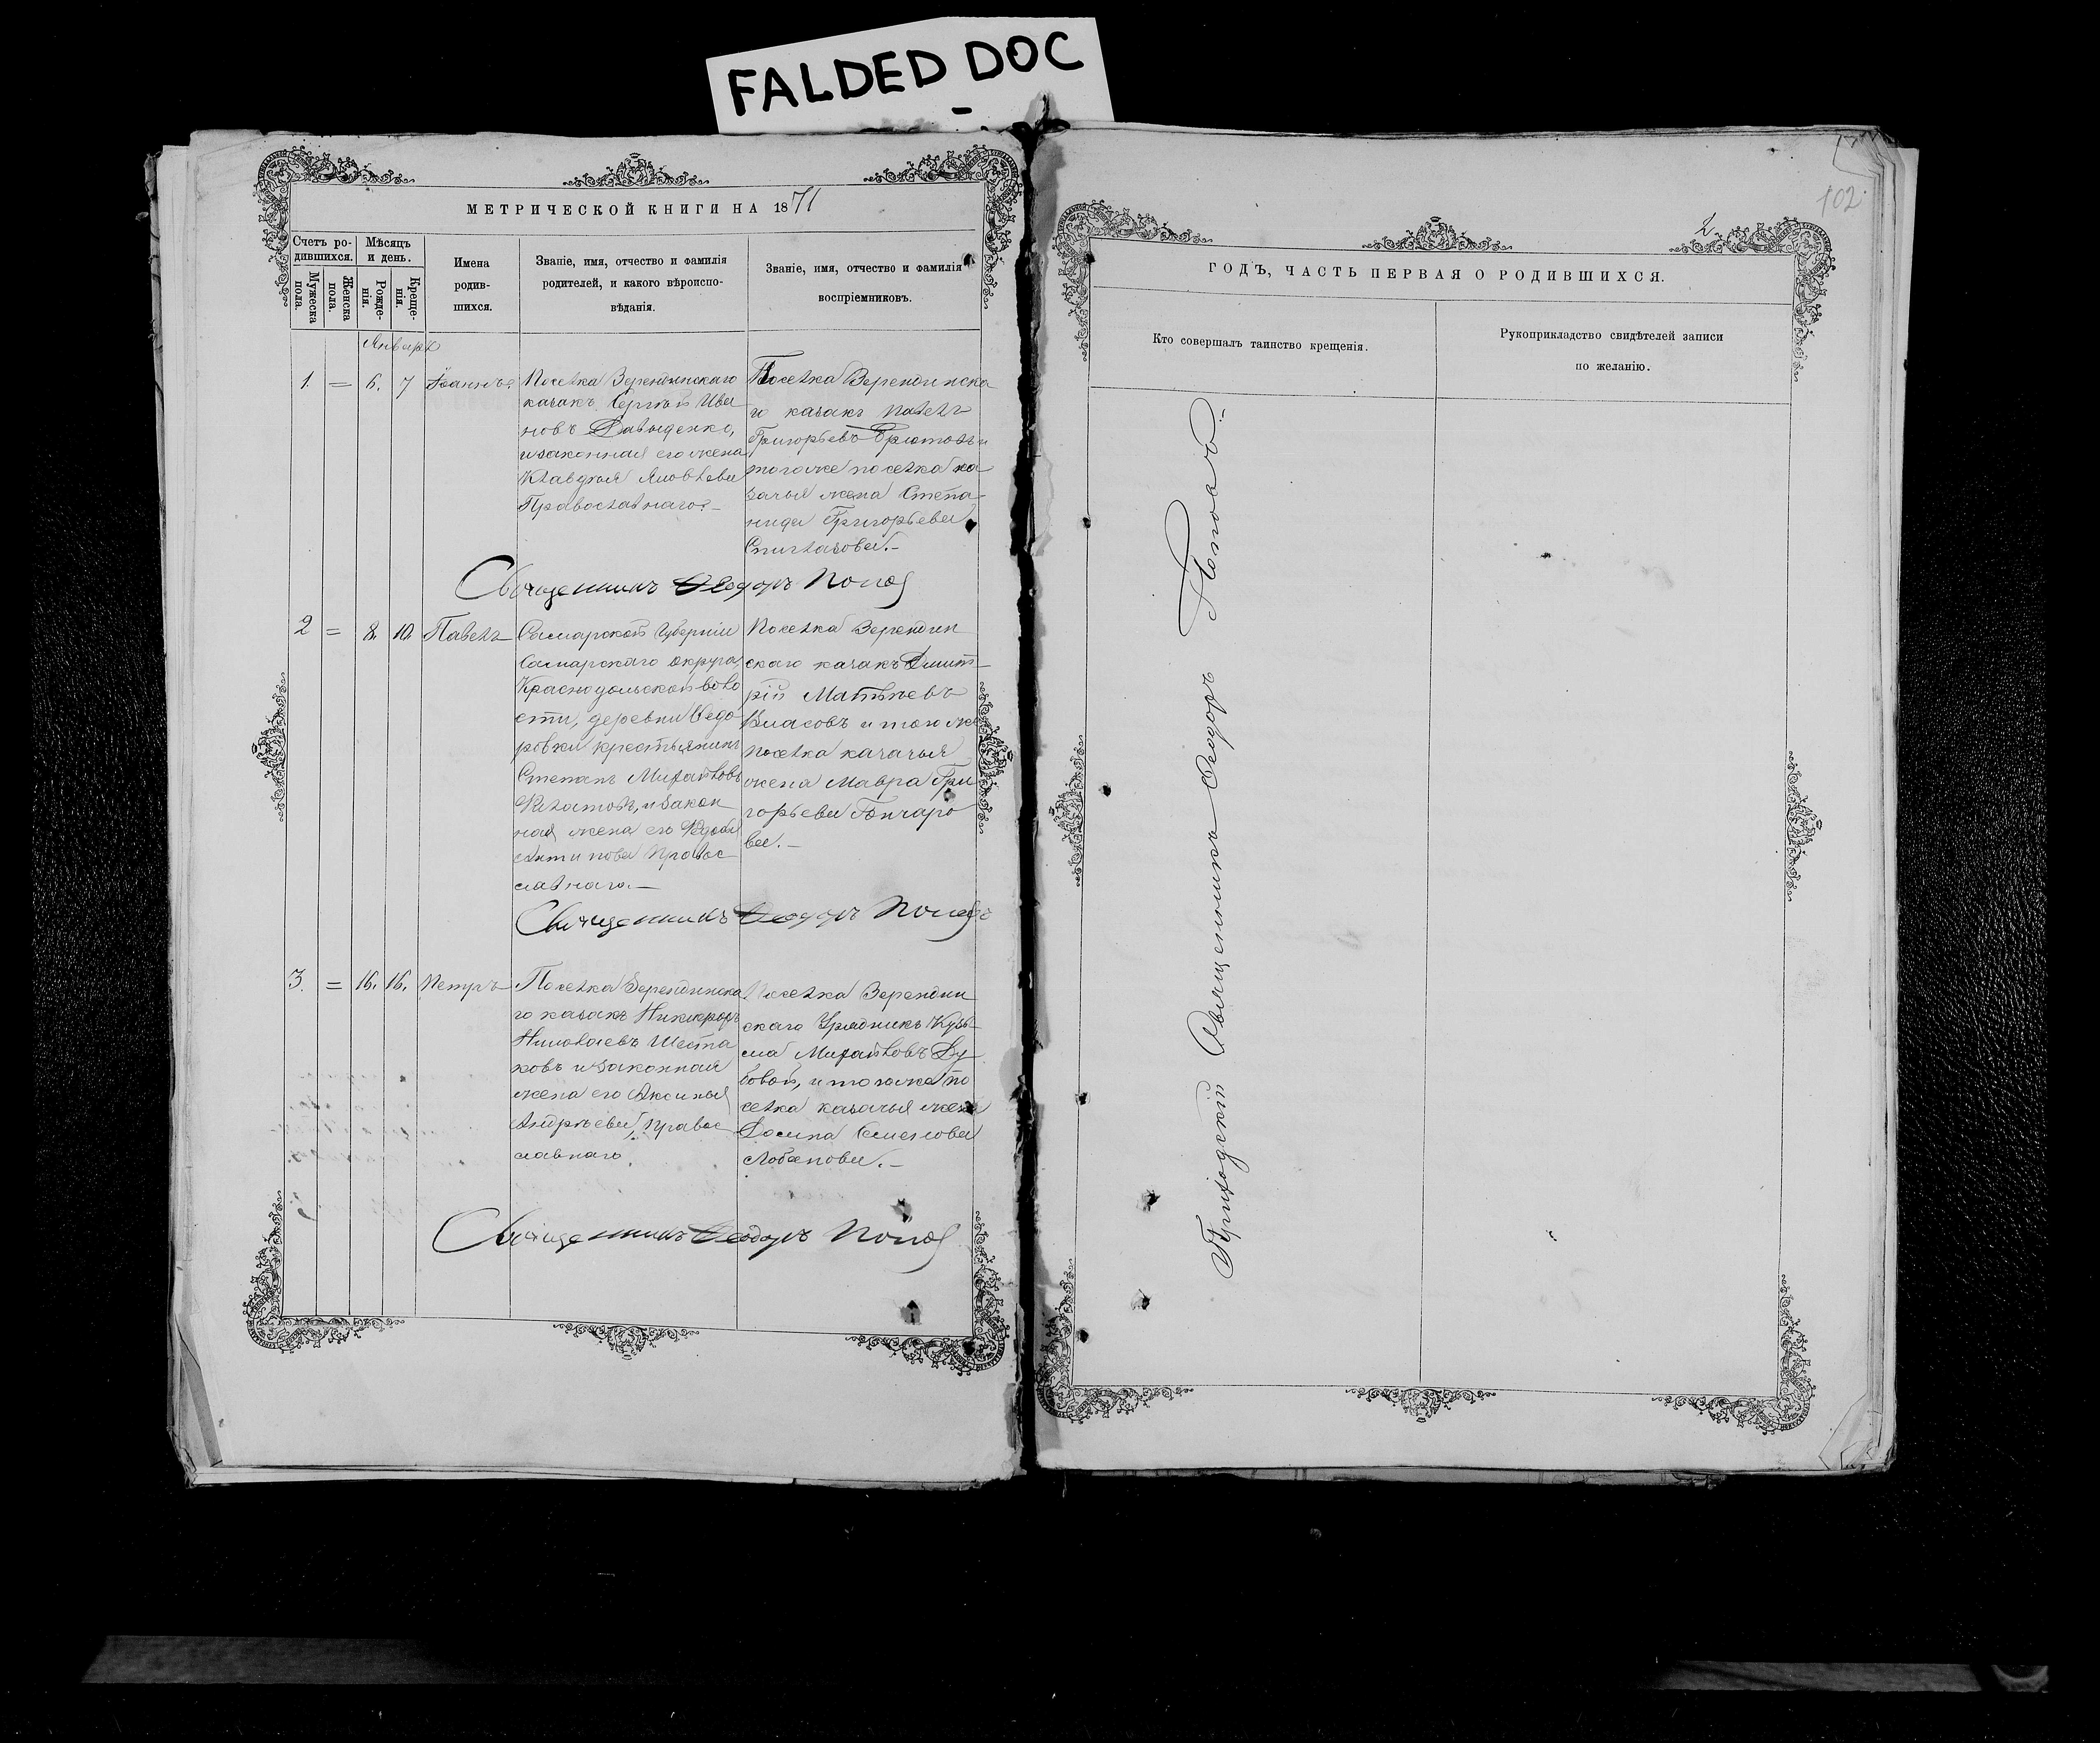 FALDED DOC
МЕТРИЧЕСКОЙ КНИГИ НА 1871
Счетъ ро-
дившихся.
Мѣсяцъ
и день.
Мужеска
пола.
Женска
пола.
Рожде-
нія.
Креще-
нія.
Имена
родив-
шихся.
Званіе, имя, отчество и фамилія
родителей, и какого вѣроиспо-
вѣданія.
Званіе, имя, отчество и фамилія
воспріемниковъ.
Январь
1. = 6. 7 Іоаннъ.
Поселка Зерендинскаго
казакъ Сергѣй Ива
новъ Давыденко,
и законная его жена
Клавдія Яковлева
Православнаго.-
Поселка Зерендинска
го казакъ Павелъ
Григорьевъ
того же поселка ка
зачья жена Степа-
нида Григорьева
Священникъ Ѳеодоръ Попов
2 = 8. 10. Павелъ
Самарской Губерніи
Самарскаго округа,
воло
сти, деревни Ѳедо
ровки крестьянинъ
Степанъ Михайловъ
и закон
ная жена его
Антипова Правос
лавнаго.-
Поселка Зерендин
скаго казакъ Дмит-
рій Матвѣевъ
Власовъ и того же
поселка казачья
жена Мавра Гри
горьева Гончаро
ва.-
Священникъ Ѳеодоръ Поповъ
3. = 16. 16. Петръ
Поселка Зерендинска
го казакъ Никифоръ
Николаевъ Шеста
ковъ и законная
жена его Аксинья
Андрѣева, правос
лавнаго.
Поселка Зерендин
скаго Урядникъ Кузь-
ма Михайловъ Ду
бовой, и того же по
селка казачья жена
Домна Семенова
Лобанова.-
Священникъ Ѳеодоръ Попов
102.
2.
ГОДЪ, ЧАСТЬ ПЕРВАЯ О РОДИВШИХСЯ.
Кто совершалъ таинство крещенія.
Рукоприкладство свидѣтелей записи
по желанію.
Приходскій Священникъ Ѳеодоръ Поповъ.